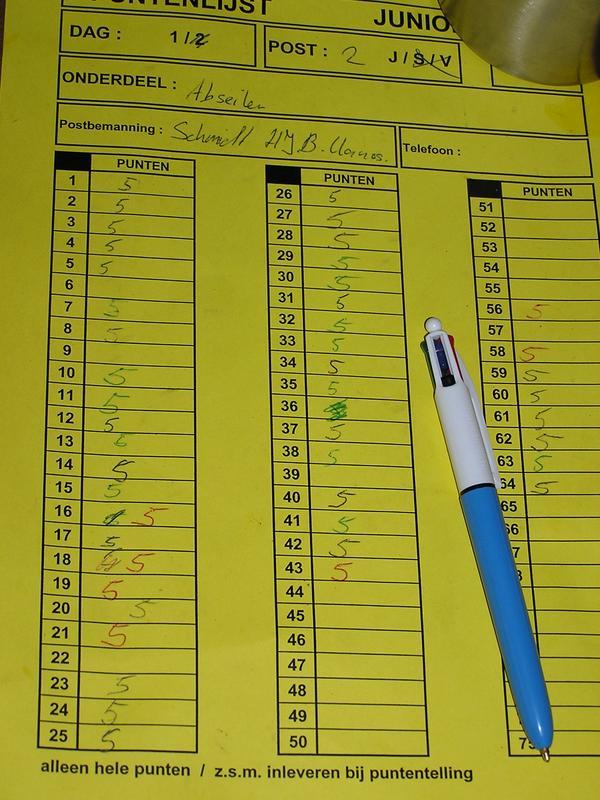 PUNTENLIJST JUNIO
DAG : 1/2 POST : 2 J/S/V
ONDERDEEL : Abseilen
Postbemanning : Schmidt HJ B. Telefoon :
PUNTEN PUNTEN PUNTEN
1 5 26 5 51
2 5 27 5 52
3 5 28 5 53
4 5 29 5 54
5 5 30 5 55
6 31 5 56 5
7 5 32 5 57
8 5 33 5 58 5
9 34 5 59 5
10 5 35 5 60 5
11 5 36 61 5
12 5 37 5 62 5
13 38 5 63 5
14 5 39 64 5
15 5 40 5 65
16 5 41 5 66
17 5 42 5 7
18 5 43 5
19 5 44
20 5 45
21 5 46
22 47
23 5 48
24 5 49
25 5 50 75
alleen hele punten / z.s.m. inleveren bij puntentelling